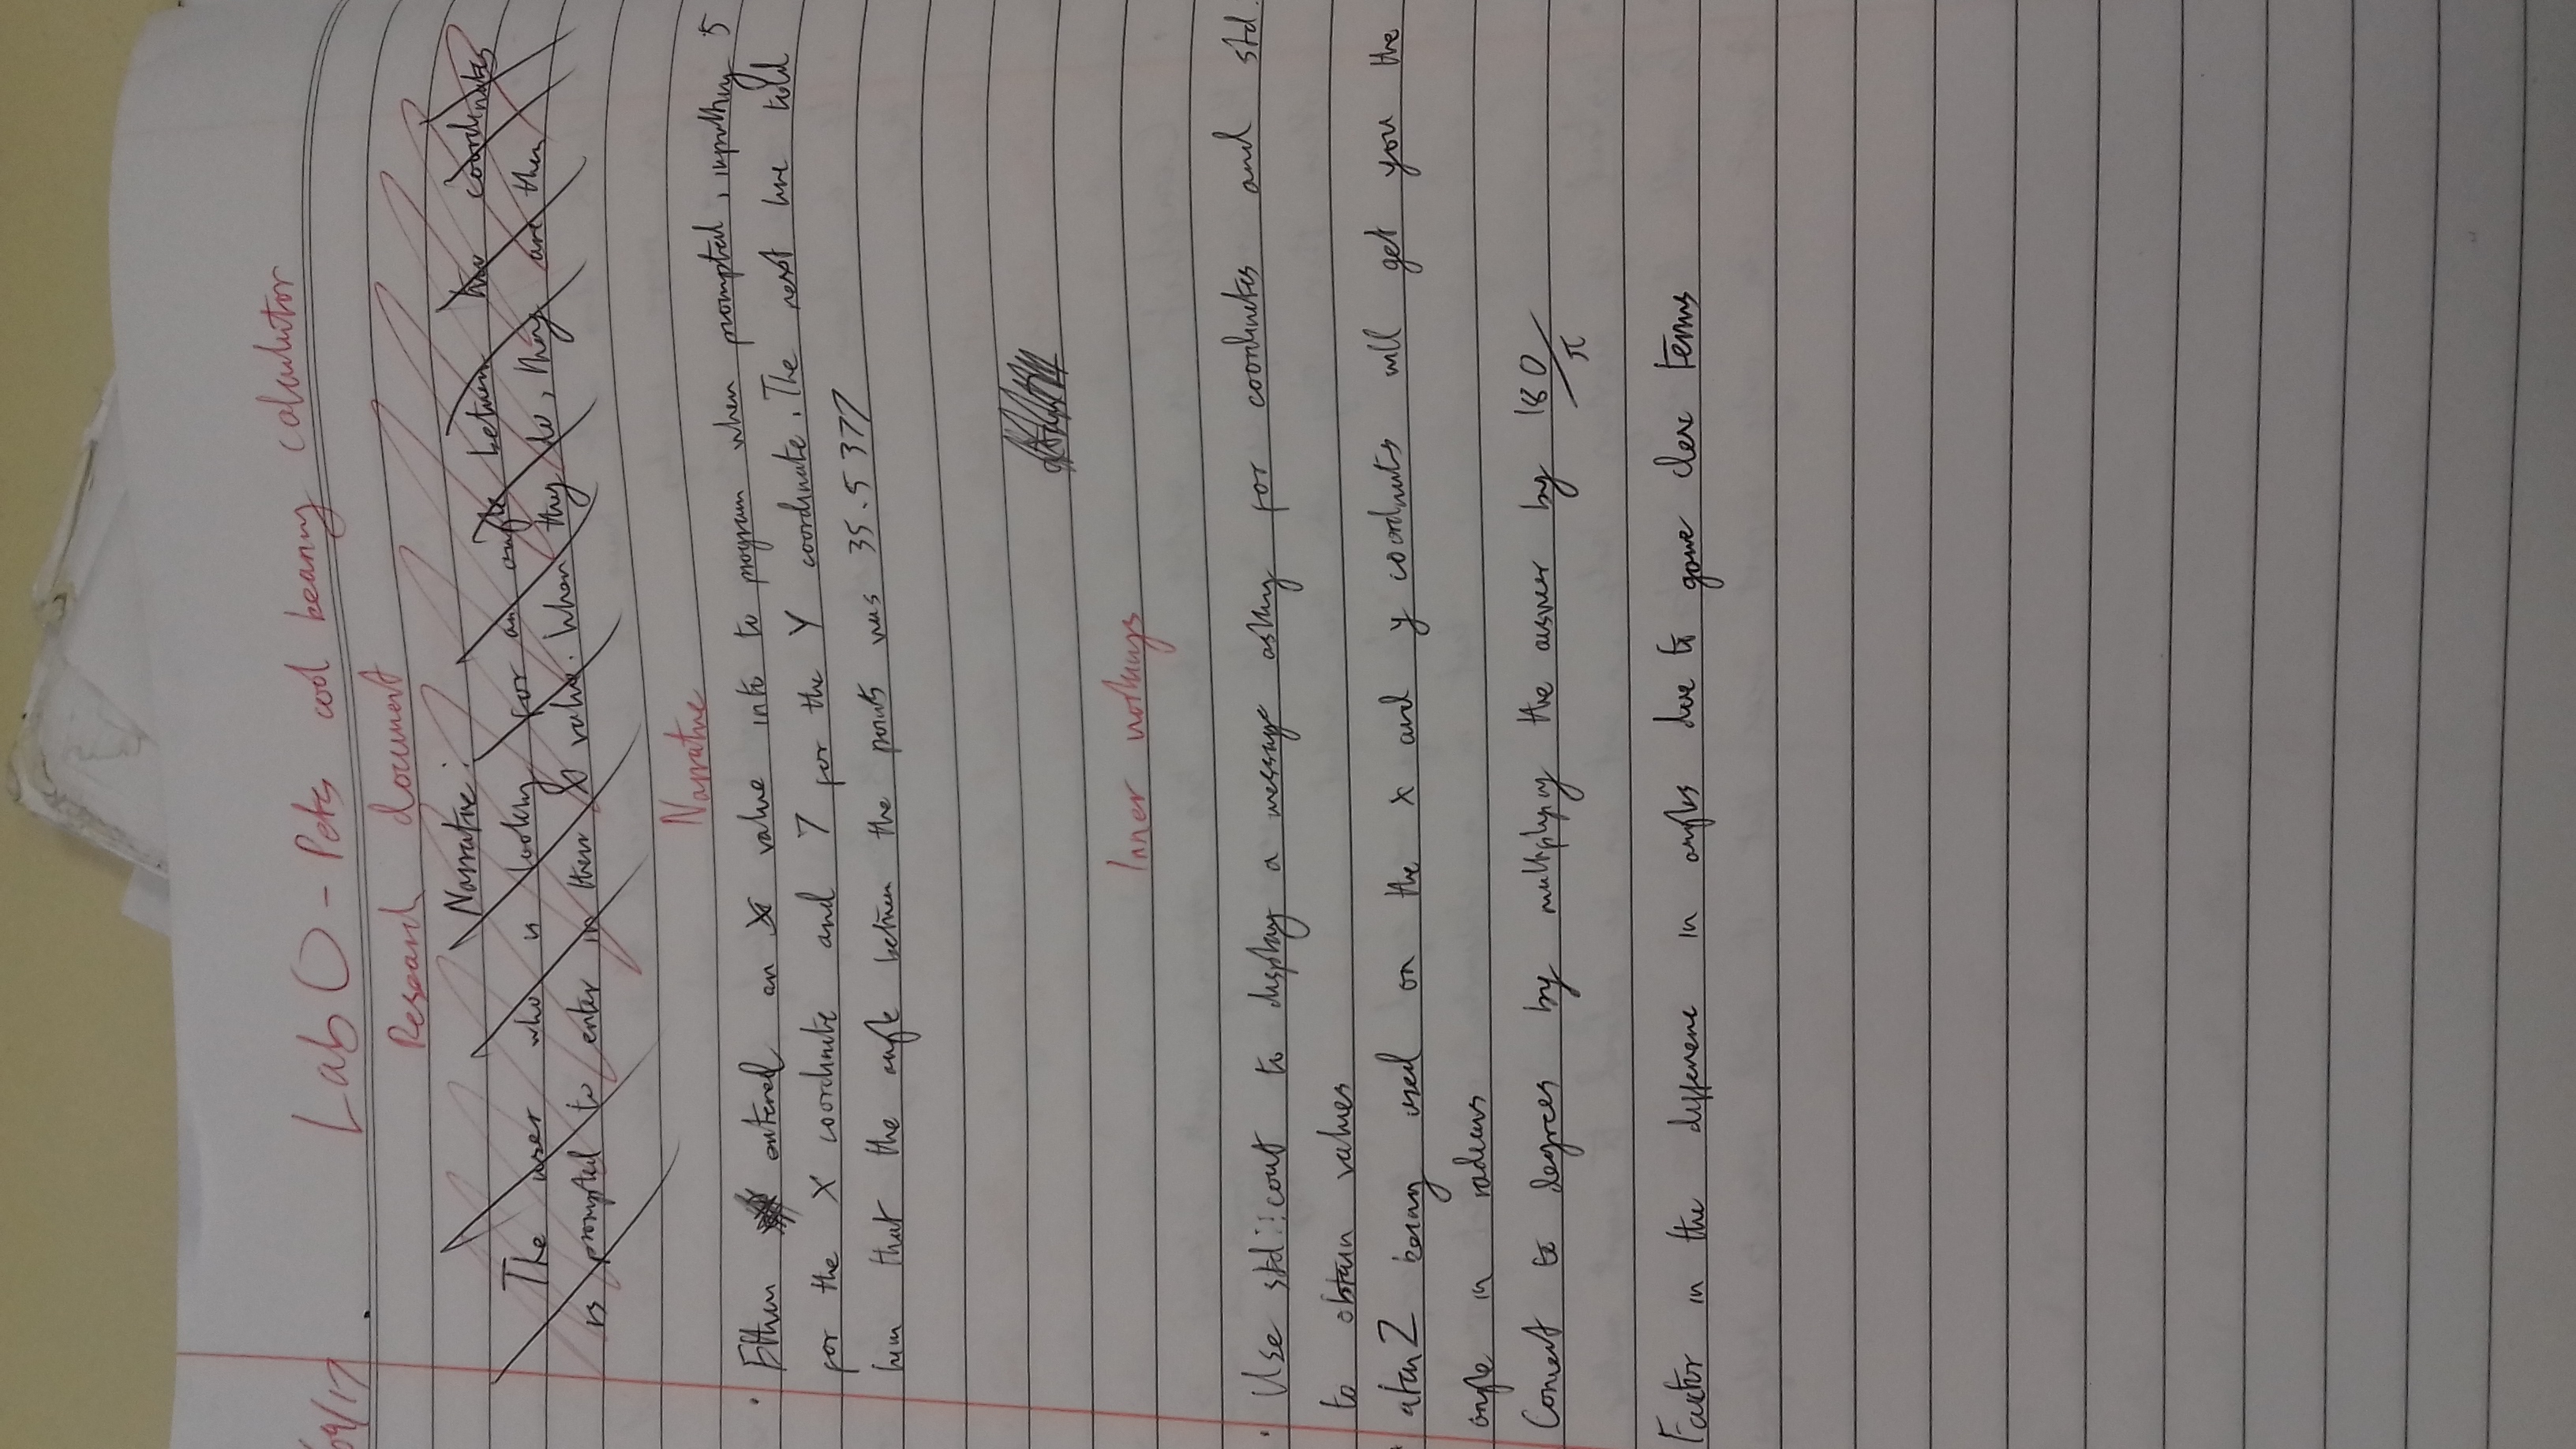 09/17
Lab 0 - Pete's cool bearing calculator
Research document
Narrative:
The user who is looking for an angle between two coordinates
is prompted to enter in their X value. When they do, they are then
Narrative
• Ethan entered an X value into to program when prompted, inputting 5
for the X coordinate and 7 for the Y coordinate. The next line told
him that the angle between the points was 35.5377
Inner workings
• Use std::cout to display a message asking for coordinates and std
to obtain values
• atan2 being used on the x and y coordinates will get you the
angle in radians
Convert to degrees by multiplying the answer by 180/π
Factor in the difference in angles due to game dev terms